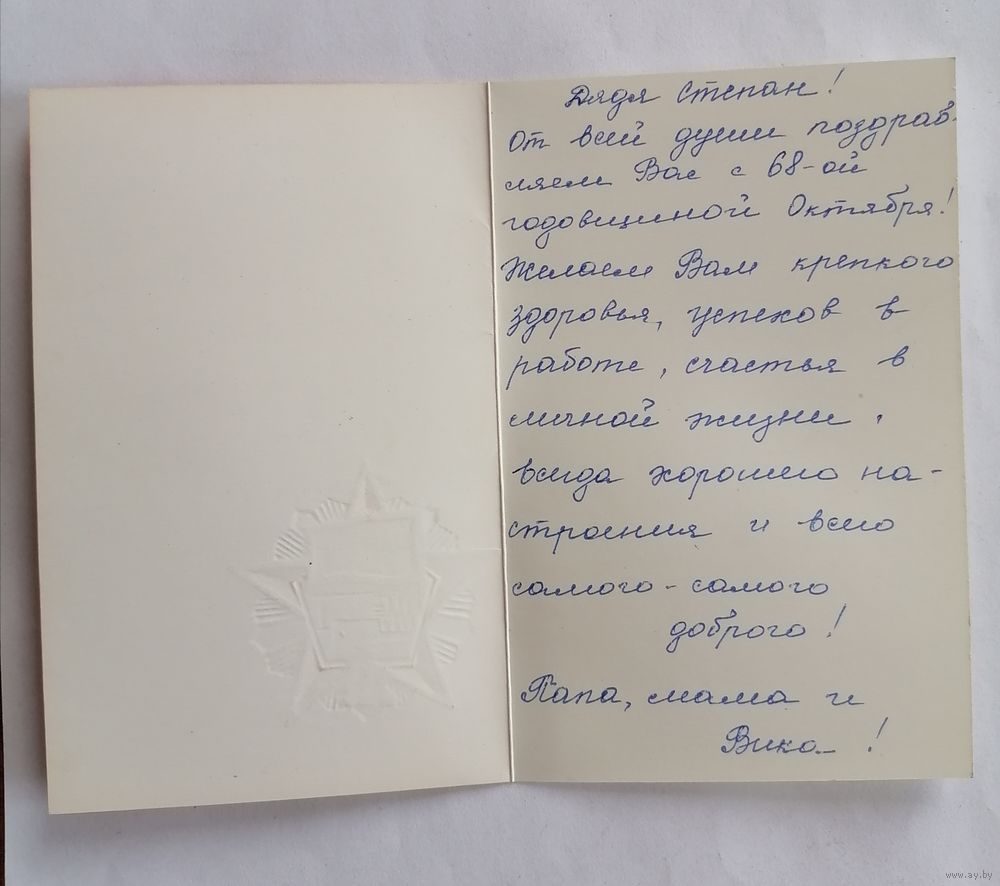 Дядя Степан!
От всей души поздрав-
ляем Вас с 68-ой
годовщиной Октября!
Желаем Вам крепкого
здоровья, успехов в
работе, счастья в
личной жизни,
всегда хорошего на-
строения и всего
самого-самого
доброго!
Папа, мама и
Вика!
www.ay.by